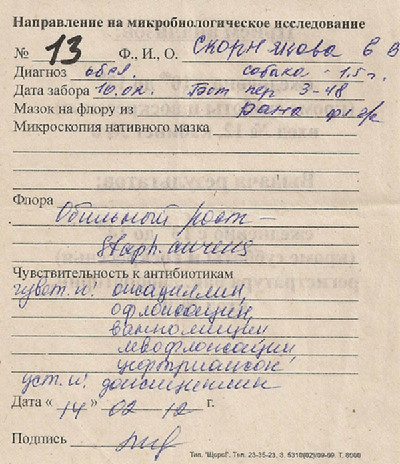 Направление на микробиологическое исследование
№ 13 Ф., И., О. Скорнякова Е В
Диагноз обсл. собака - 1,5 г.
Дата забора 10.02. Бот пер 3-48
Мазок на флору из рана
Микроскопия нативного мазка
Флора
Обильный рост –
Staph. aureus
Чувствительность к антибиотикам
чувст. к: оксациллин,
офлоксацин,
ванкомицин
левофлоксацин,
цефтриаксон,
уст. к: доксициклин
Дата « 14 » 02 12 г.
Подпись
Тип. "Щорс". Тел. 23-35-23. З. 6318(02)/09-09. Т. 8000